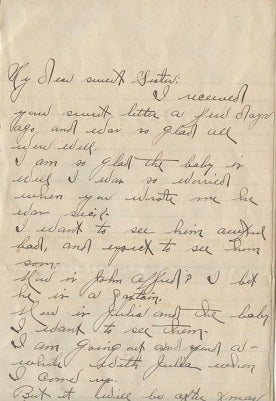 My dear sweet Sister:
I received
your sweet letter a few days
ago, and was so glad all
were well.
I am so glad the baby is
well I was so worried
when you wrote me he
was sick.
I want to see him awful
bad, and expect to see them
soon.
How is John Alfred? I bet
he is a
How is Julia and the baby
I want to see them.
I am going out and spend a-
while with Julia when
I come up.
But it will be after Xmas